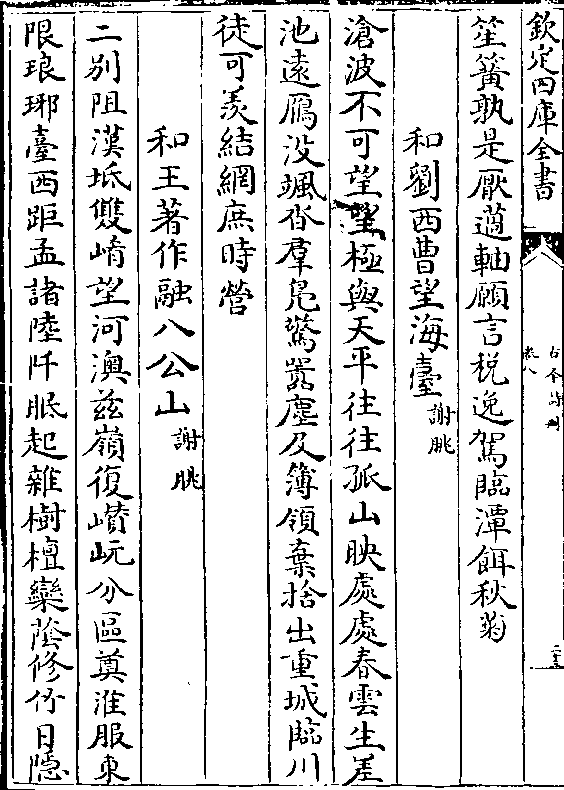 欽定四庫全書
古今詩刪
卷八
二十三
笙簧孰是厭薖軸願言稅逸駕臨潭餌秋菊
和劉西曹望海臺 謝朓
滄波不可望望極與天平往往孤山映處處春雲生差
池遠鴈没颯沓羣鳬驚嚻塵及簿領棄捨出重城臨川
徒可羨結網庶時營
和王著作融八公山 謝朓
二别阻漢坻雙崤望河澳兹嶺復巑岏分區奠淮服東
限琅琊臺西距孟諸陸阡眠起雜樹檀欒蔭修竹日隱